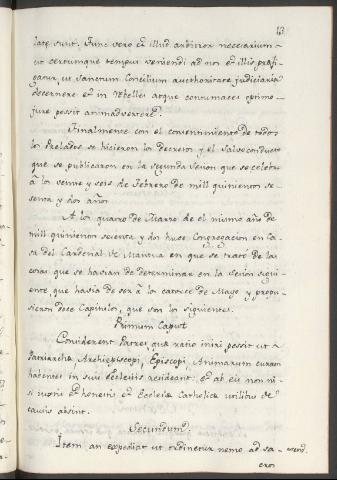 13
late sunt. Tunc vero et illud arbitror necessarium
ut certumque tempus veniendi ad nos et illis præfi-
gatur, ut Sanctum Concilium aucthoritate judiciaria
decernere et in rebelles atque contumaces optimo
jure possit animadvertere.
Finalmente con el consentimiento de todos
los Prelados se hicieron los Decretos y el Salvoconducto
que se publicaron en la segunda Sesion que se celebrò
à los veinte y seis de Febrero de mill quinientos se-
senta y dos años.
A los quatro de Marzo de el mismo año de
mill quinientos sesenta y dos huvo Congregacion en Ca-
sa del Cardenal de Mantua en que se tratò de las
cosas que se havian de determinar en la Sesion siguî-
ente que havia de ser à los catorce de Mayo y propu-
sieron doce Capitulos, que son los siguientes.
Primum Caput
Considerent Patres quæ ratio iniri possit ut
Patriarchæ Archiepiscopi, Episcopi, Animarum curam
habentes in suis Ecclesiis resideant, et ab eis non ni-
si justis et honestis et Ecclesiæ Catholicæ utilibus de
causis absint.
Secundum.
Item, an expediat ut ordinetur nemo ad sa-
cros